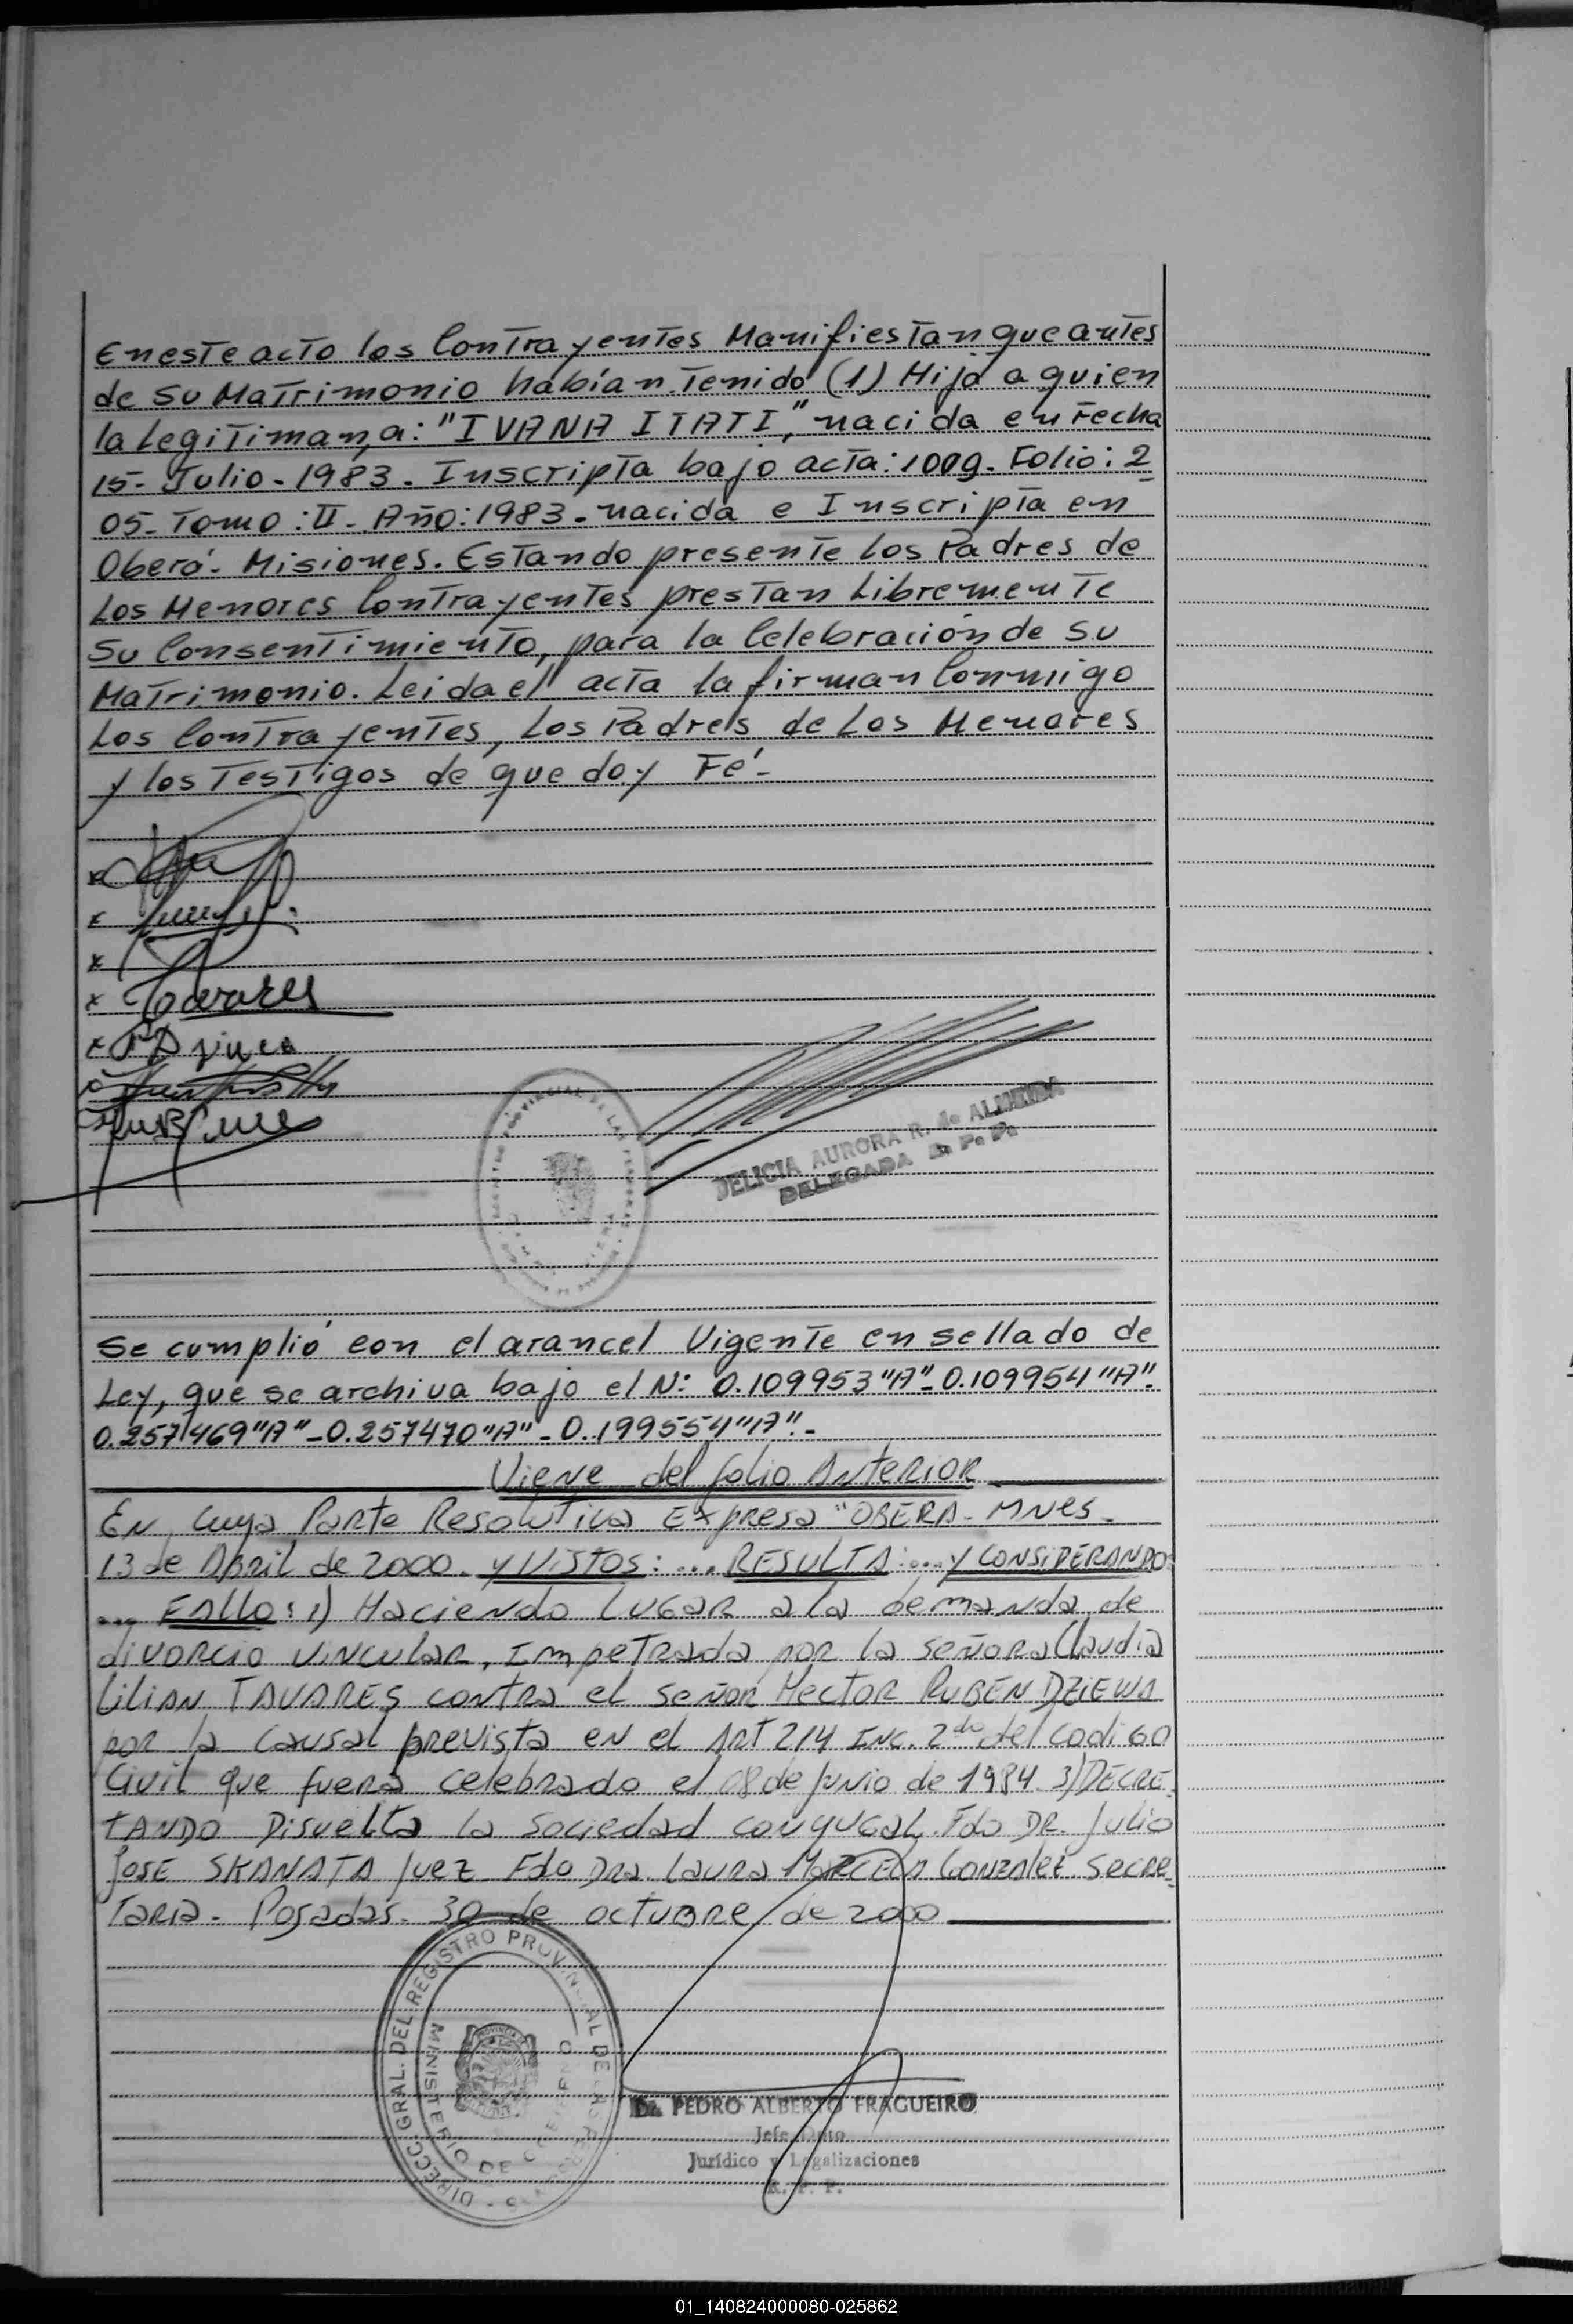 En este acto los Contrayentes Manifiestan que antes
de su Matrimonio habían tenido (1) Hija a quien
la Legitiman, a: "IVANA ITATI," nacida en Fecha
15- Julio - 1983 - Inscripta bajo acta: 1009 - Folio: 2
05 - Tomo: II - Año: 1983 - nacida e Inscripta en
Oberá - Misiones. Estando presente los Padres de
Los Menores Contrayentes prestan Libremente
Su Consentimiento, para la Celebración de su
Matrimonio. Leida el acta la firman Conmigo
Los Contrayentes, Los Padres de Los Menores
y los Testigos de que doy Fé -
Tavares
DELICIA AURORA R. de ALMEIDA
DELEGADA R. P. P.
Se cumplió con el arancel Vigente en sellado de
Ley, que se archiva bajo el N: 0.109953"A"- 0.109954"A"-
0.257469"A" - 0.257470"A" - 0.199554"A".-
Viene del folio Anterior
En cuya Parte Resolutiva Expresa "OBERA - MNES -
13 de Abril de 2000. Y VISTOS: ... RESULTA: ... Y CONSIDERANDO:
... FALLO: 1) Haciendo lugar a la demanda de
divorcio vincular, Impetrada por la señora Claudia
Lilian TAVARES contra el señor Hector RUBEN DZIEWA
por la causal prevista en el Art 214 Inc. 2do del codigo
Civil que fuera celebrado el 08 de Junio de 1984. 3) DECRE-
TANDO Disuelta la Sociedad conyugal. Fdo DR. Julio
Jose SKANATA Juez Fdo Dra. Laura MARCELA Gonzalez Secre-
taria - Posadas - 30 de octubre de 2000
DIRECC. GRAL. DEL REGISTRO PROVINCIAL DE LAS PERSONAS
MINISTERIO DE GOBIERNO
Dr. PEDRO ALBERTO FRAGUEIRO
Jefe Dpto
Jurídico y Legalizaciones
R. P. P.
01_140824000080-025862